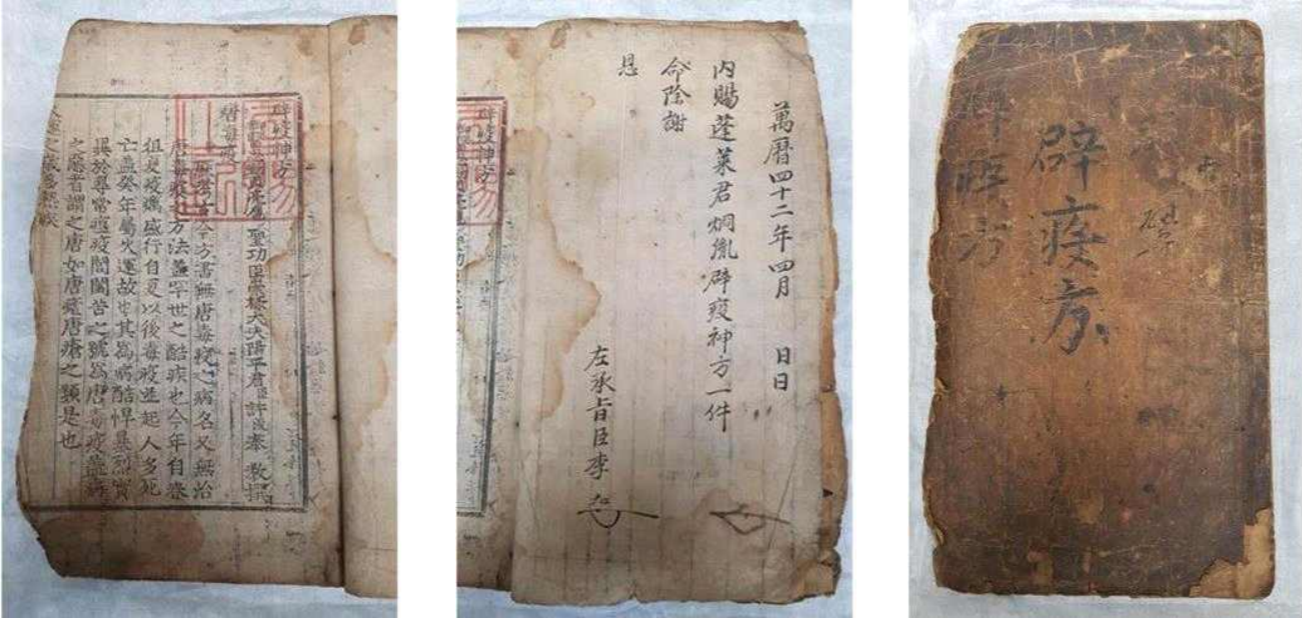 辟疫神方
聖功臣崇祿大夫陽平君臣許浚奉 教撰
唐毒疫
歷考古今方書無唐毒疫之病名又無治
唐毒疫之方法蓋罕世之酷疾也今年自春
徂夏疫癘盛行自夏以後毒疫並起人多死
亡蓋癸年屬火運故也其爲病酷悍暴烈實
異於尋常瘟疫閭閻苦之號爲唐毒疫蓋病
之惡者謂之唐如唐瘧唐瘡之類是也
萬曆四十二年四月 日
內賜蓬萊君烱胤辟疫神方一件
命除謝
恩
左承旨臣李
辟疫方